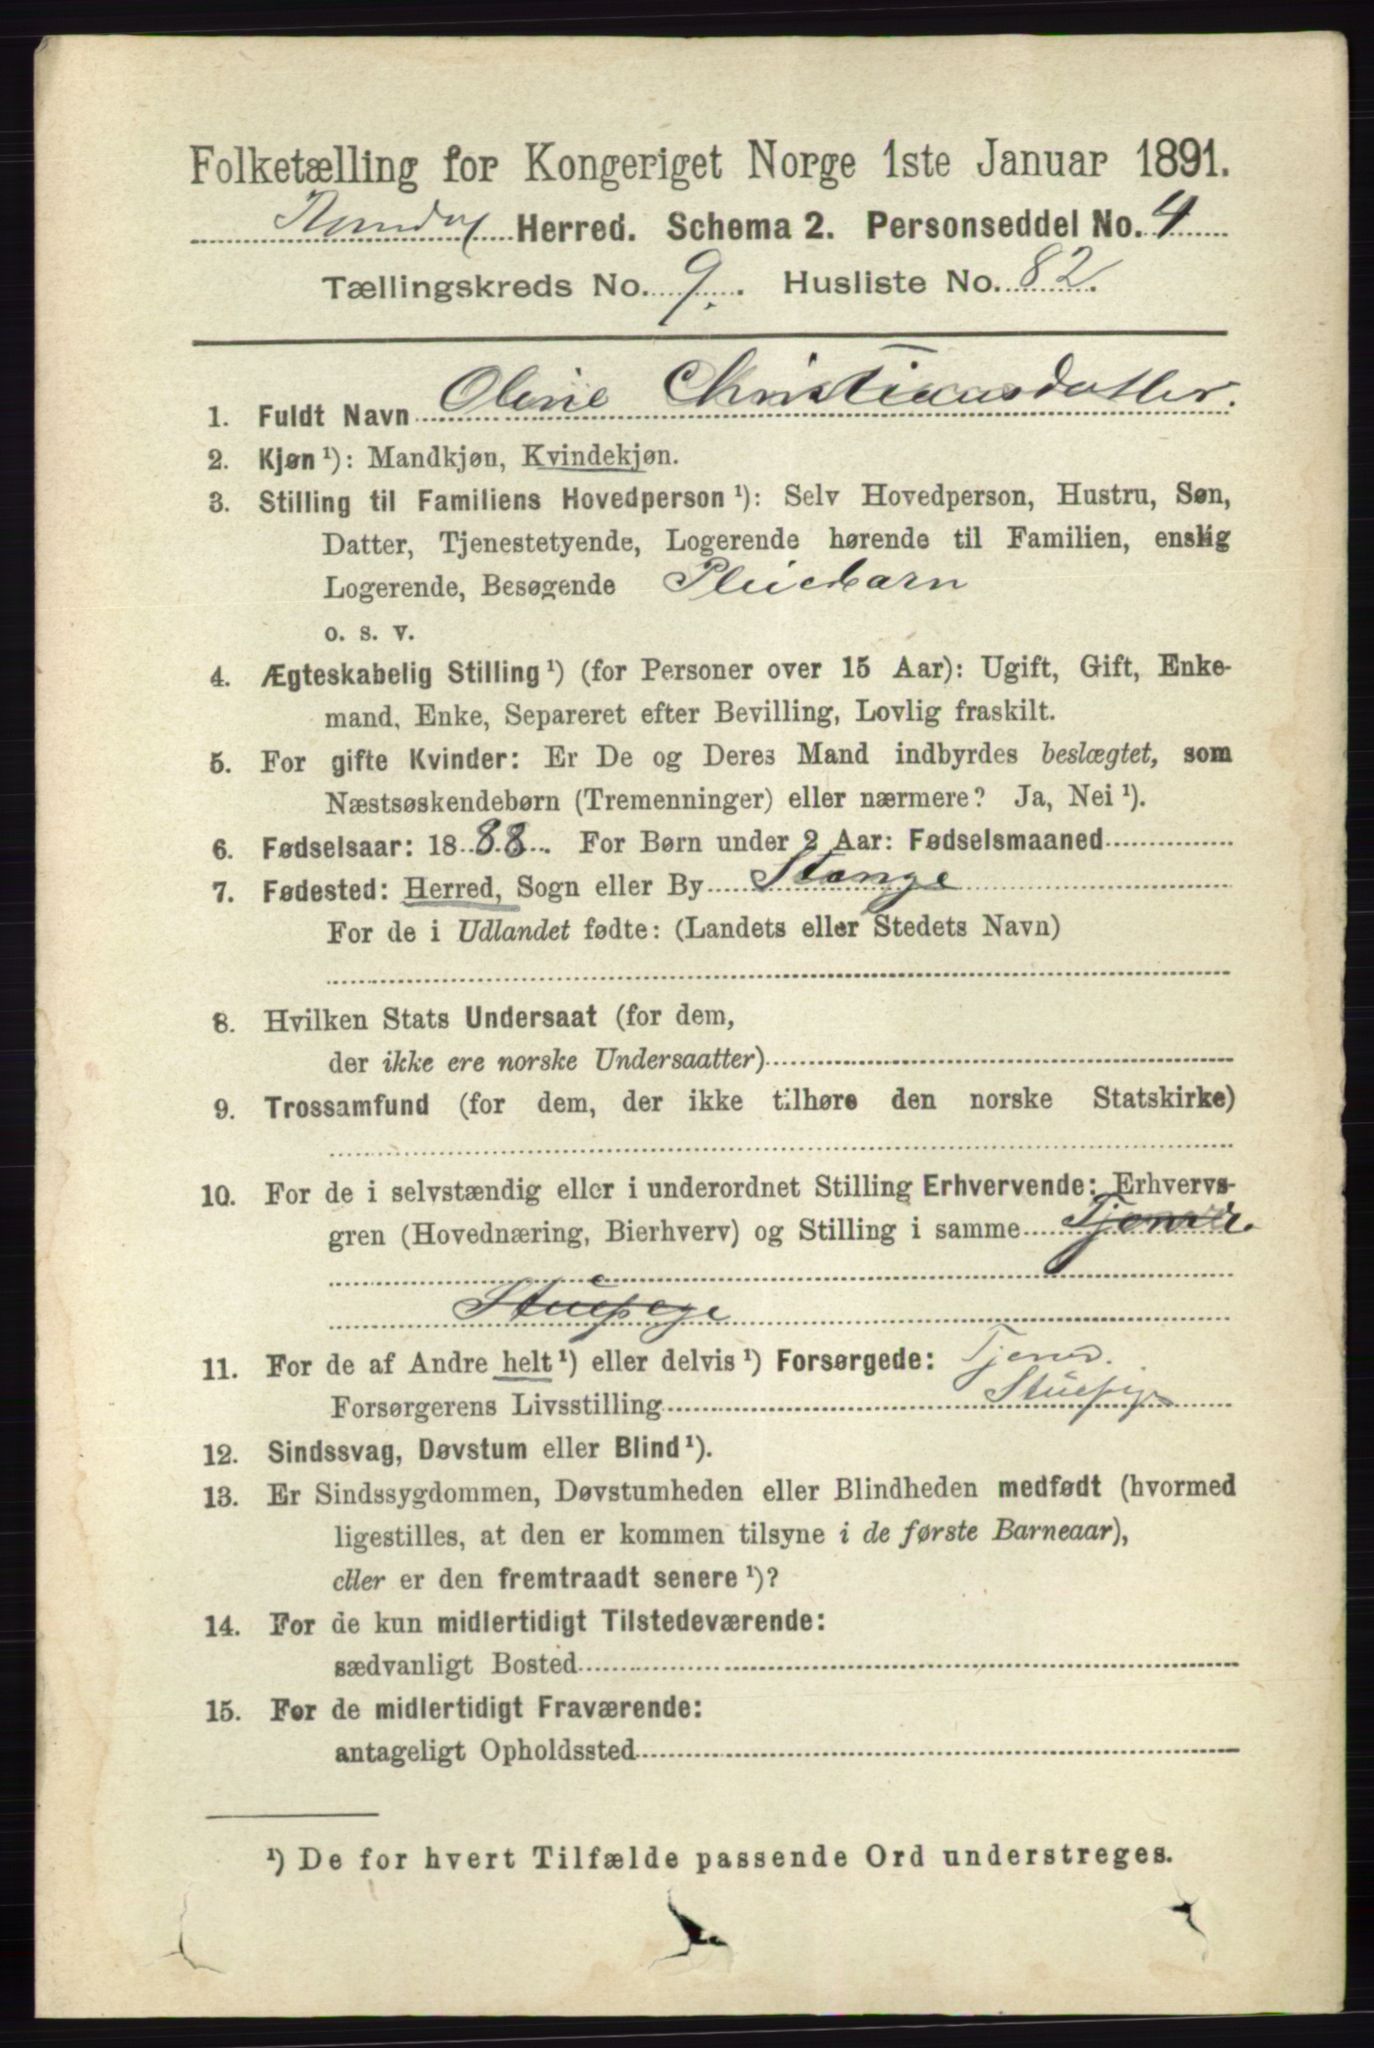 Folketælling for Kongeriget Norge 1ste Januar 1891.
Herred. Schema 2. Personseddel No. 4
Tællingskreds No. 9. Husliste No. 82.
1. Fuldt Navn Oline Christiansdatter.
2. Kjøn ¹): Mandkjøn, Kvindekjøn.
3. Stilling til Familiens Hovedperson ¹): Selv Hovedperson, Hustru, Søn,
Datter, Tjenestetyende, Logerende hørende til Familien, enslig
Logerende, Besøgende Pleiebarn
o. s. v.
4. Ægteskabelig Stilling ¹) (for Personer over 15 Aar): Ugift, Gift, Enke-
mand, Enke, Separeret efter Bevilling, Lovlig fraskilt.
5. For gifte Kvinder: Er De og Deres Mand indbyrdes beslægtet, som
Næstsøskendebørn (Tremenninger) eller nærmere? Ja, Nei ¹).
6. Fødselsaar: 1888. For Børn under 2 Aar: Fødselsmaaned
7. Fødested: Herred, Sogn eller By Stange
For de i Udlandet fødte: (Landets eller Stedets Navn)
8. Hvilken Stats Undersaat (for dem,
der ikke ere norske Undersaatter)
9. Trossamfund (for dem, der ikke tilhøre den norske Statskirke)
10. For de i selvstændig eller i underordnet Stilling Erhvervende: Erhvervs-
gren (Hovednæring, Bierhverv) og Stilling i samme
Stuepige
11. For de af Andre helt ¹) eller delvis ¹) Forsørgede: Tjend.
Forsørgerens Livsstilling Stuepige
12. Sindssvag, Døvstum eller Blind ¹).
13. Er Sindssygdommen, Døvstumheden eller Blindheden medfødt (hvormed
ligestilles, at den er kommen tilsyne i de første Barneaar),
eller er den fremtraadt senere ¹)?
14. For de kun midlertidigt Tilstedeværende:
sædvanligt Bosted
15. For de midlertidigt Fraværende:
antageligt Opholdssted
¹) De for hvert Tilfælde passende Ord understreges.